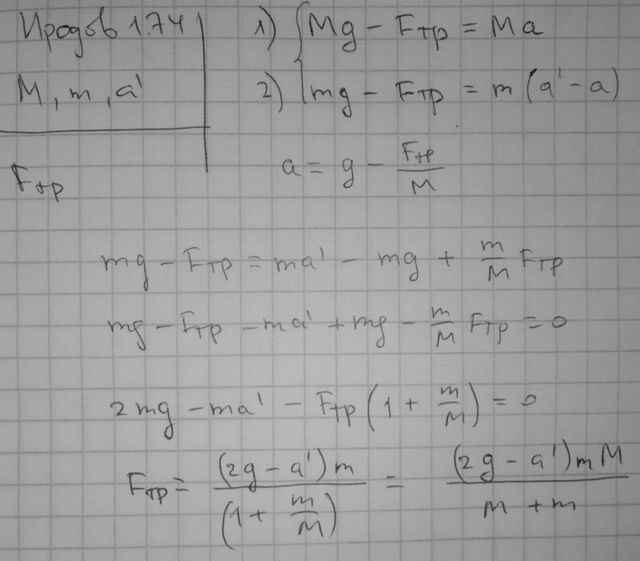 Иродов 1.74
M, m, a'
Fтр
1) { Mg - Fтр = Ma
2) { mg - Fтр = m (a' - a)
a = g - Fтр/M
mg - Fтр = ma' - mg + m/M Fтр
mg - Fтр - ma' + mg - m/M Fтр = 0
2mg - ma' - Fтр (1 + m/M) = 0
Fтр = (2g - a')m / (1 + m/M) = (2g - a')mM / M + m